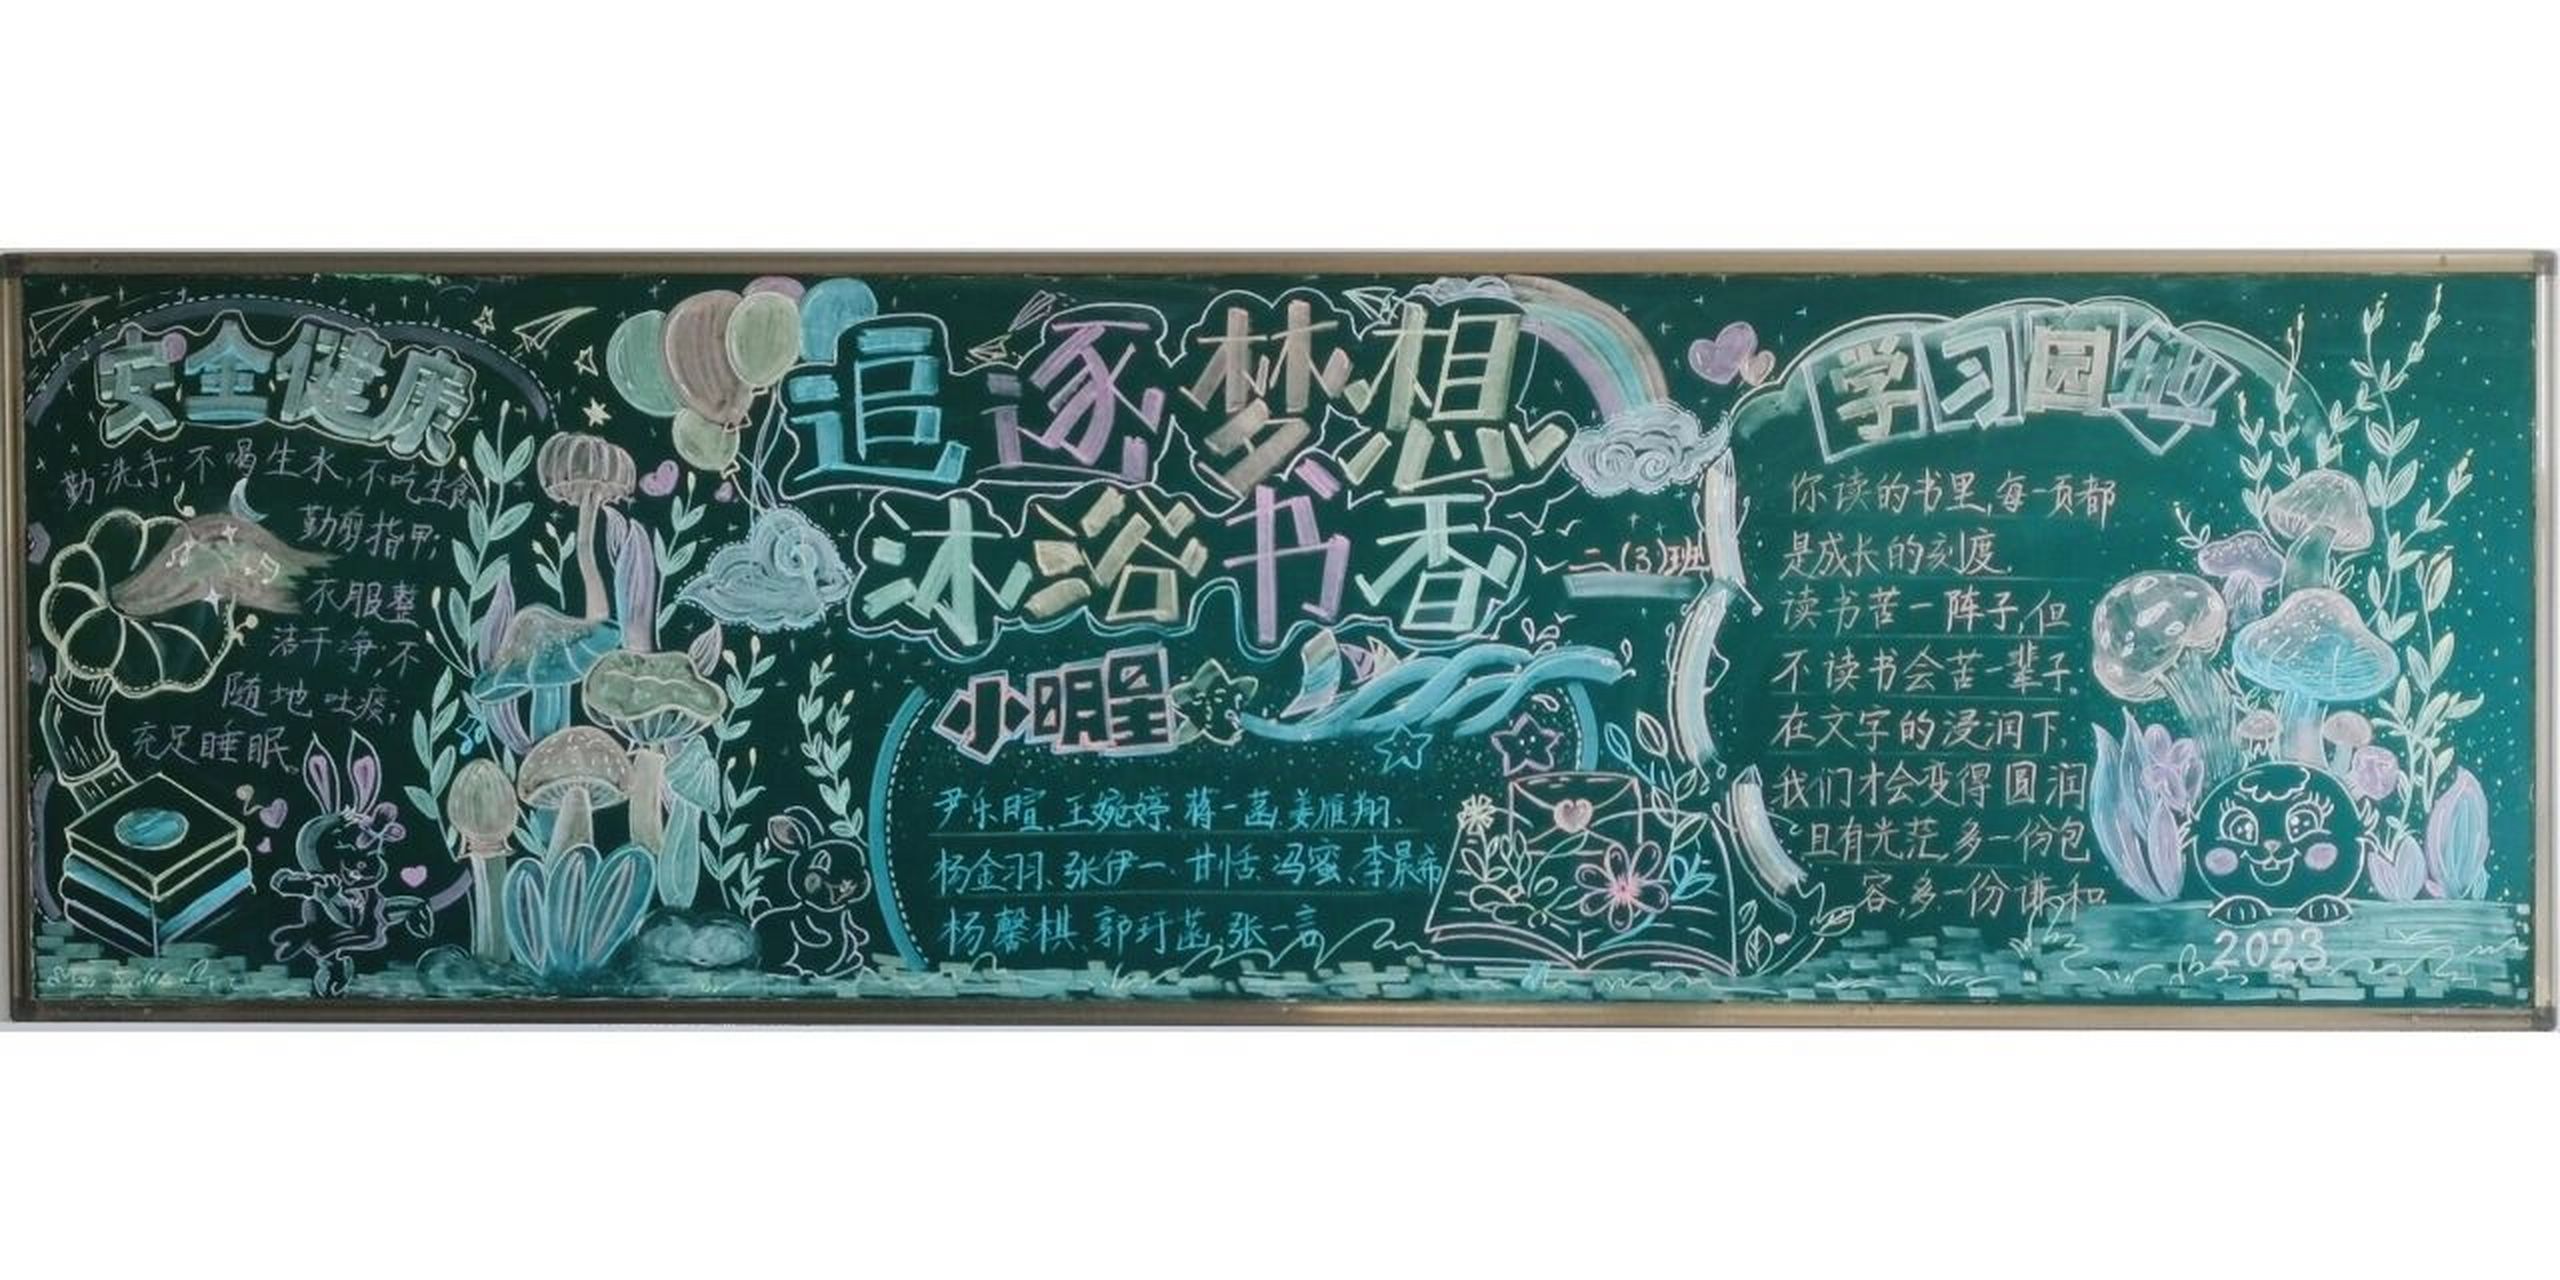 安全健康
勤洗手;不喝生水,不吃生食
勤剪指甲;
衣服整
洁干净;不
随地吐痰;
充足睡眠。
追逐梦想
沐浴书香
二(3)班
小明星
尹乐暄、王婉婷、蒋一菡、姜雁翔、
杨金羽、张伊一、甘恬、冯蜜、李晨希
杨馨棋、郭玗菡、张一言
学习园地
你读的书里,每一页都
是成长的刻度.
读书苦一阵子,但
不读书会苦一辈子.
在文字的浸润下,
我们才会变得圆润
且有光茫,多一份包
容,多一份谦和.
2023